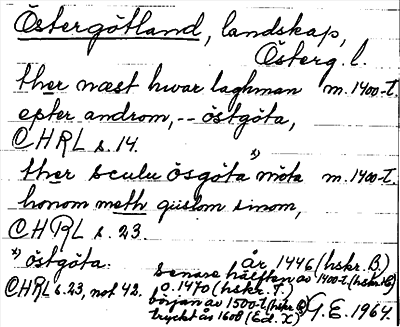 Östergötland, landskap,
Österg. l.
ther næst hwar laghman m. 1400-t.
epter androm, -- östgöta,
CHRL s. 14.
ther sculu ösgöta *) möta m. 1400-t.
honom meth gislom sinom,
CHRL s. 23.
*) östgöta. år 1446 (hskr. B.)
senare hälften av 1400-t (hskr. G)
CHRL s. 23, not 42. o. 1470 (hskr. T.)
början av 1500-t (hskr.
tryckt år 1608 (Ed. X) G. E. 1964.